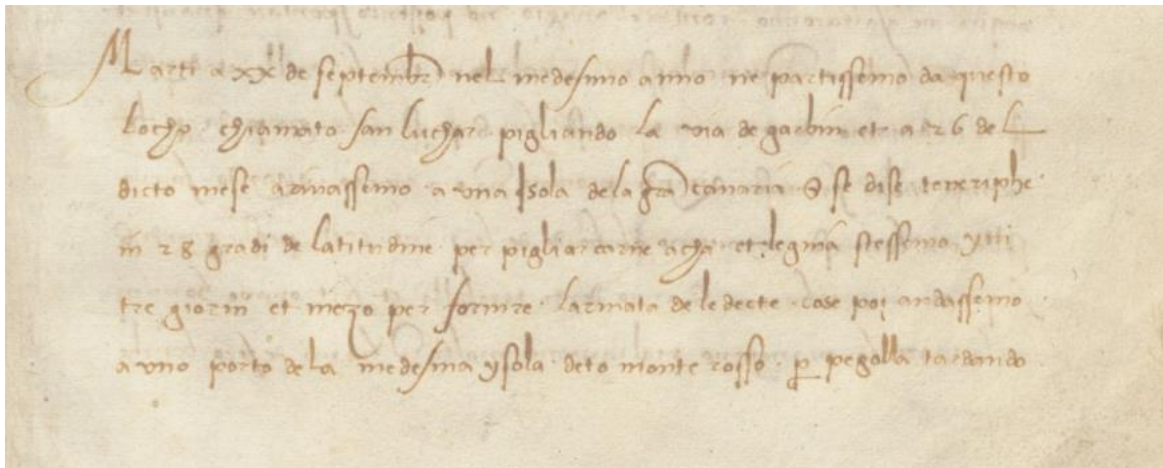 Marti a xx de septembr nel medesimo anno ne partissemo da questo
locho chiamato san luchar pigliando la via de garbin et a 26 del
dicto mese arivassemo a una Isola dela gra canaria q̃ se dise teneriphe
in 28 gradi de latitudine per pigliar carne acha et legnia stessemo yui
tre giorni et mezo per fornire larmata de le decte cose poi andassemo
a uno porto de la medesma ysola deto monte rosso p̱ pegolla tardando